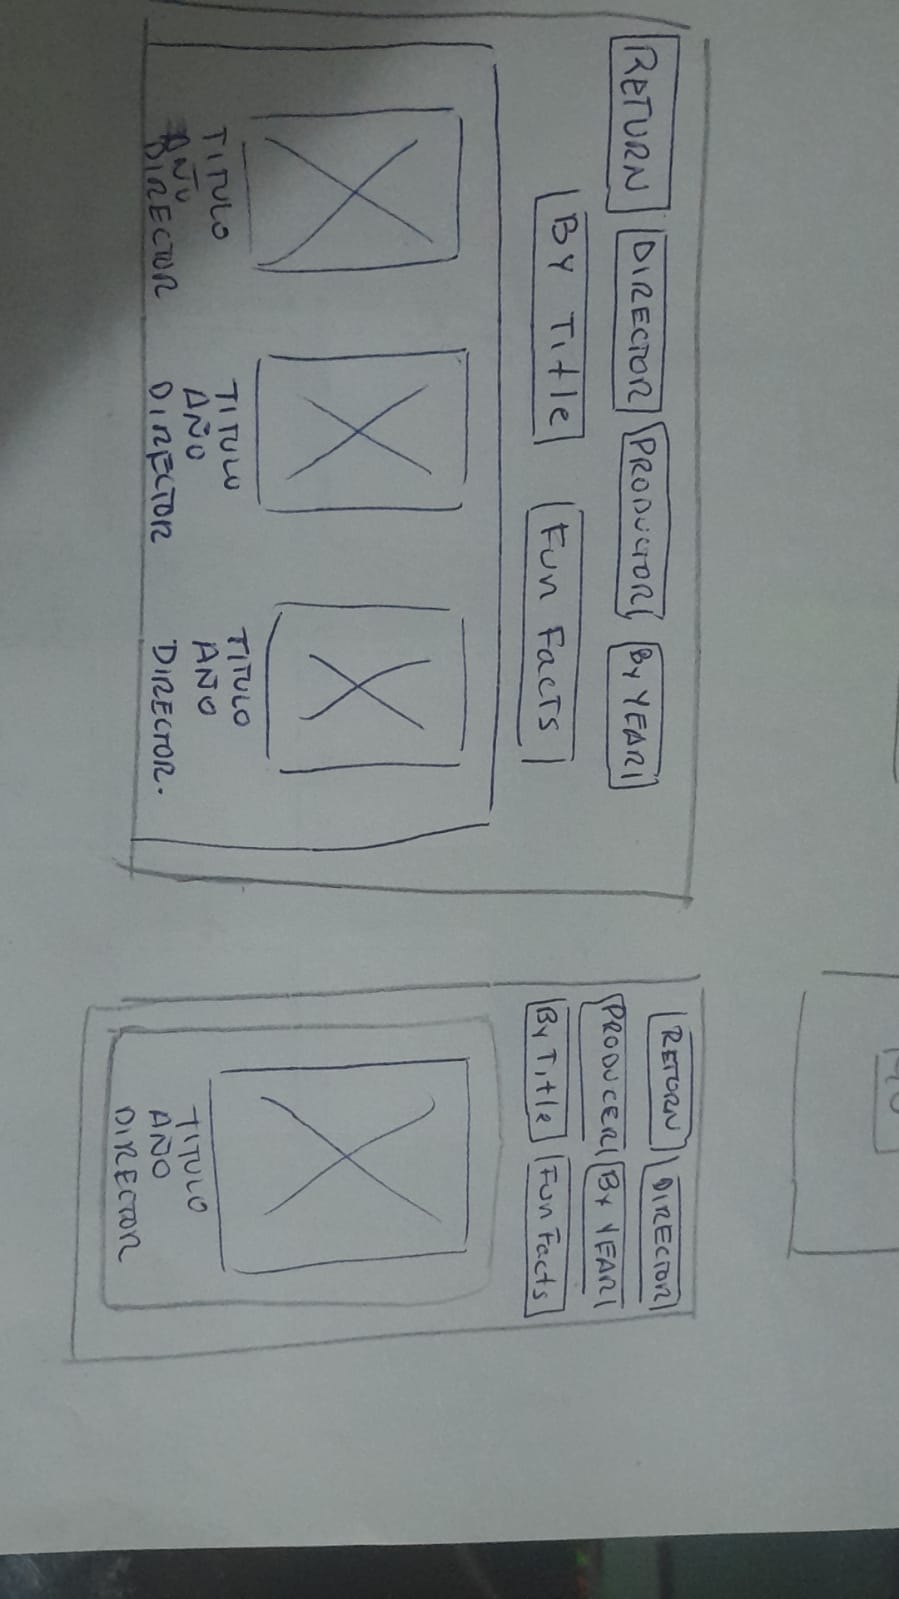 RETURN DIRECTOR PRODUCTOR BY YEAR
BY TITLE FUN FACTS
TITULO TITULO TITULO
AÑO AÑO AÑO
DIRECTOR DIRECTOR DIRECTOR.
RETURN DIRECTOR
PRODUCER BY YEAR
BY TITLE FUN FACTS
TITULO
AÑO
DIRECTOR